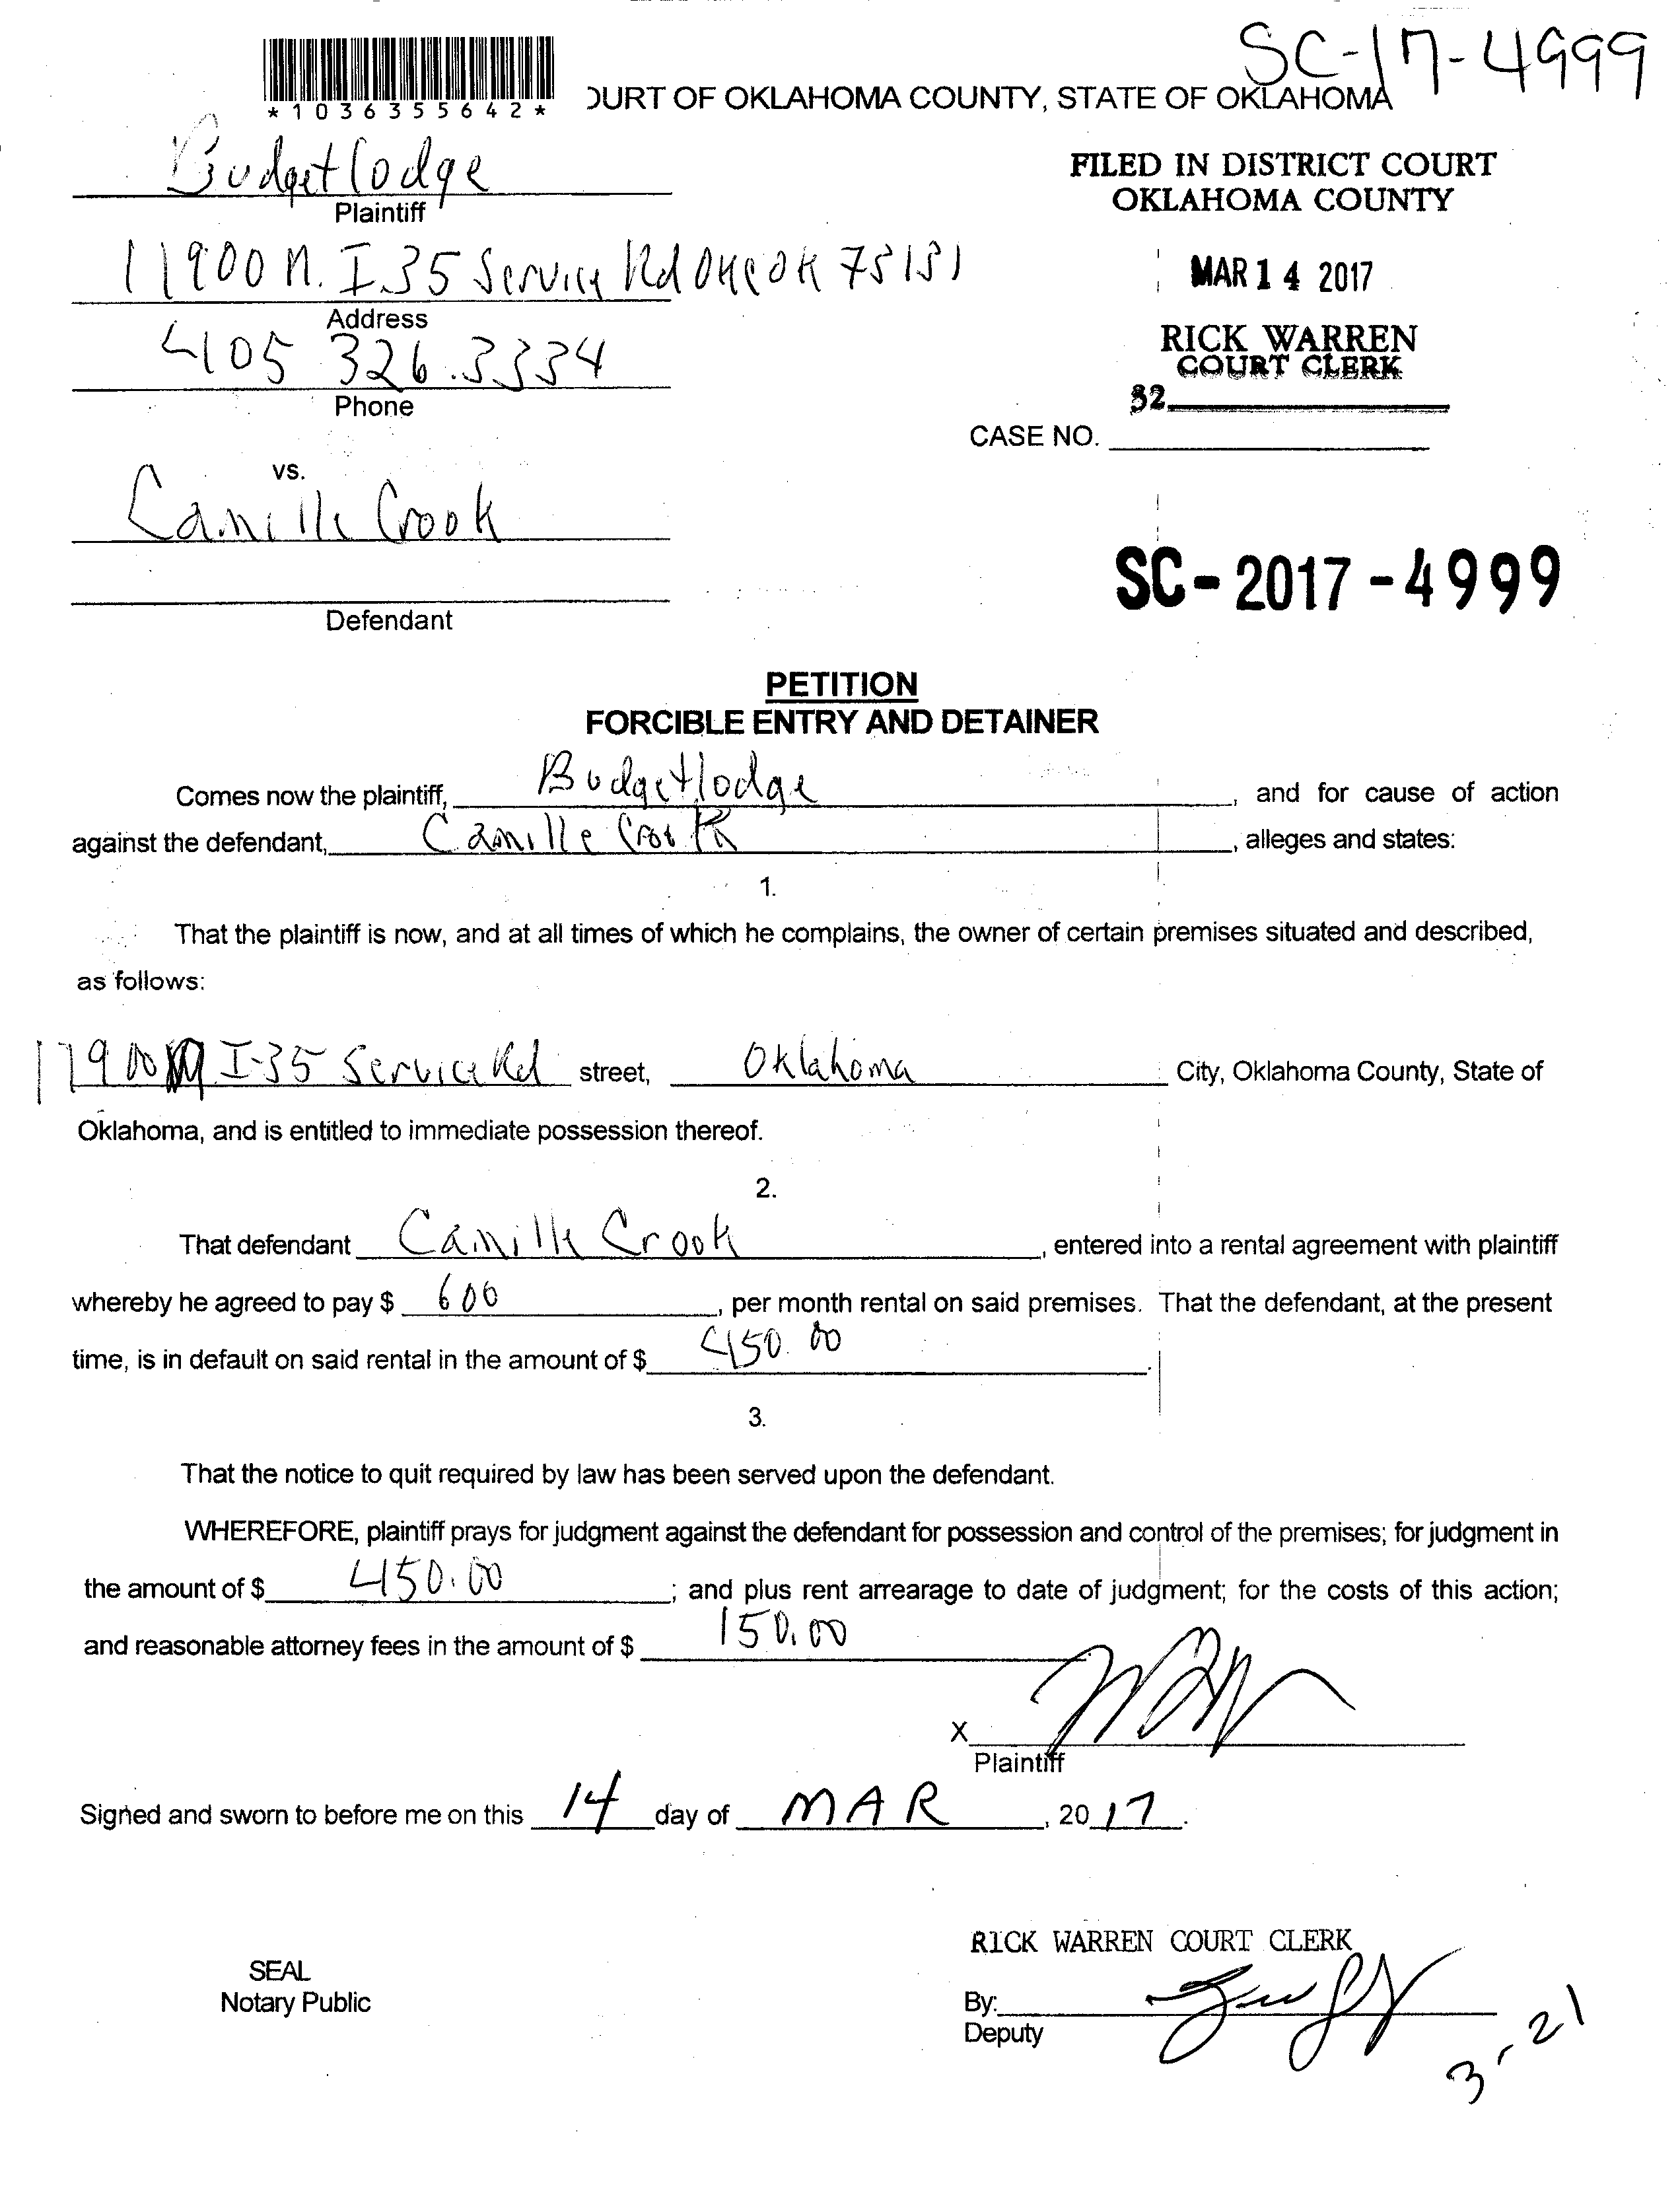 SC-17-4999
*1036355642*
OURT OF OKLAHOMA COUNTY, STATE OF OKLAHOMA
Budget lodge
Plaintiff
FILED IN DISTRICT COURT
OKLAHOMA COUNTY
11900 N. I.35 Service Rd OKC OK 73131
Address
MAR 14 2017
405 326.3334
Phone
RICK WARREN
COURT CLERK
32
CASE NO.
vs.
Camille Crook
Defendant
SC-2017-4999
PETITION
FORCIBLE ENTRY AND DETAINER
Comes now the plaintiff, Budgetlodge, and for cause of action
against the defendant, Camille Crook, alleges and states:
1.
That the plaintiff is now, and at all times of which he complains, the owner of certain premises situated and described,
as follows:
11900 N I-35 Service Rd street, Oklahoma City, Oklahoma County, State of
Oklahoma, and is entitled to immediate possession thereof.
2.
That defendant Camille Crook, entered into a rental agreement with plaintiff
whereby he agreed to pay $ 600, per month rental on said premises. That the defendant, at the present
time, is in default on said rental in the amount of $ 450.00.
3.
That the notice to quit required by law has been served upon the defendant.
WHEREFORE, plaintiff prays for judgment against the defendant for possession and control of the premises; for judgment in
the amount of $ 450.00; and plus rent arrearage to date of judgment; for the costs of this action;
and reasonable attorney fees in the amount of $ 150.00
X
Plaintiff
Signed and sworn to before me on this 14 day of MAR, 2017.
RICK WARREN COURT CLERK
SEAL
Notary Public
By:
Deputy
3-21